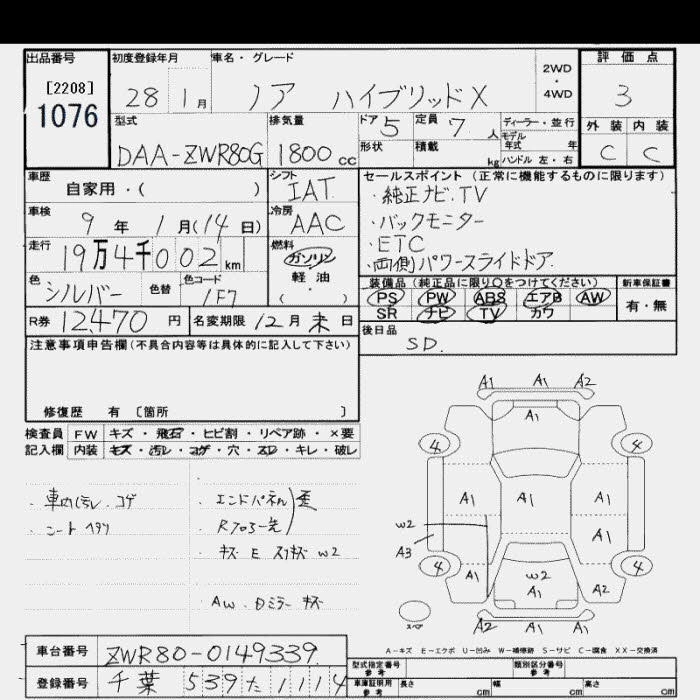 出品番号
[2208]
1076
初度登録年月
28 1月
車名・グレード
ノア ハイブリッドX
2WD
・
4WD
評価点
3
型式
DAA-ZWR80G
排気量
1800cc
ドア 5
定員 7 人
形状
積載 kg
ディーラー・並行
モデル年式 年
ハンドル 左・右
外装 内装
C C
車歴
自家用・( )
シフト
IAT
車検
9年 1月(14日)
冷房
AAC
走行
19万4千002km
燃料
ガソリン
軽油
( ・ )
色
シルバー
色替
色コード
1F7
R券 12,470円
名変期限 12月末日
セールスポイント(正常に機能するものに限ります)
・純正ナビ.TV
・バックモニター
・ETC
・両側パワースライドドア.
装備品(純正品に限り○をつけてください)
新車保証書
PS PW ABS エアB AW
SR ナビ TV カワ
有・無
後日品
SD.
注意事項申告欄(不具合内容等は具体的に記入して下さい)
修復歴 有 〔箇所 〕
検査員記入欄
FW キズ・飛石・ヒビ割・リペア跡・×要
内装 キズ・汚レ・コゲ・穴・スレ・キレ・破レ
・車内汚レ.コゲ
・シート ヘタリ
・エンドパネル 歪
・Rフロアー先
・キズ E スリキズ W2
・AW.ドミラー キズ
A1 A1 A2
A1
4 4
A1 A1 A1
W2
A3
A1
4 4
A1 W2 A2
A1
スペア
A2 A1 A1
A-キズ E-エクボ U-凹み W-補修跡 S-サビ C-腐食 XX-交換済
車台番号
ZWR80-0149339
登録番号
千葉 539た1114
型式指定番号 参考
類別区分番号 参考
車庫証明用 参考
長さ cm
幅 cm
高さ cm